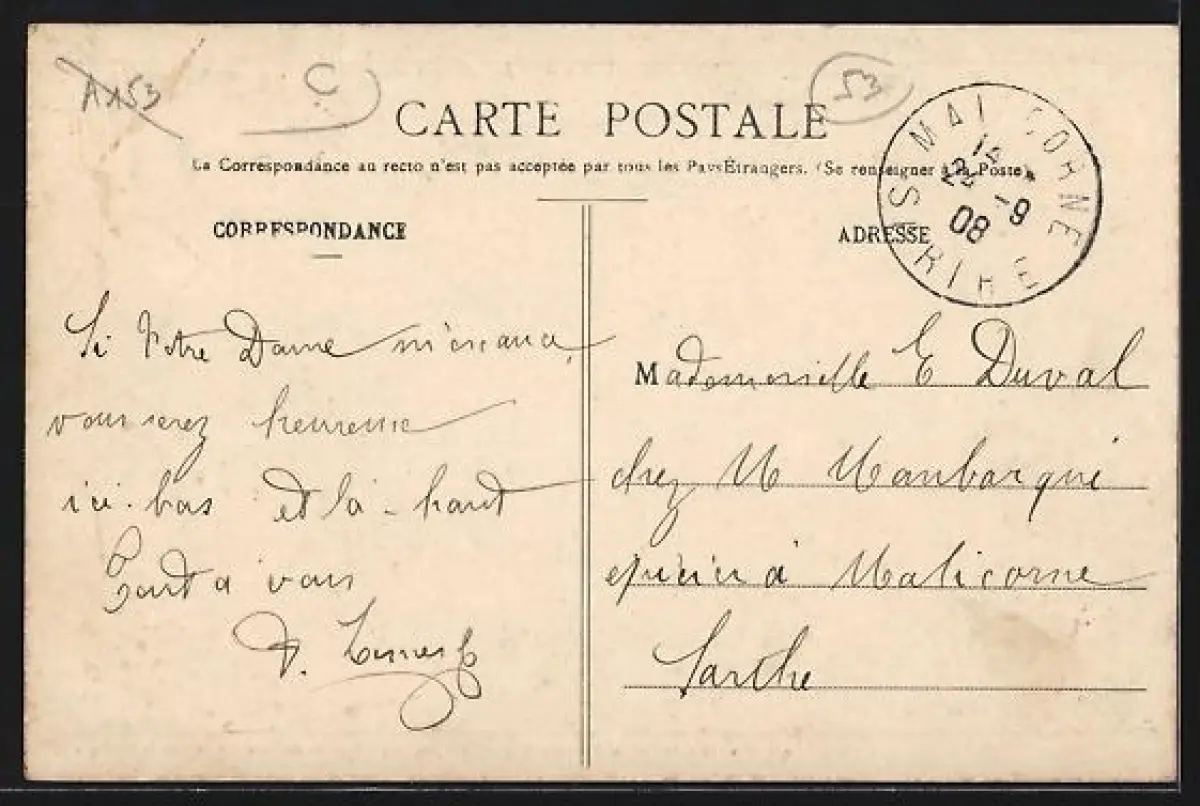 A 153
C
53
CARTE POSTALE
La Correspondance au recto n'est pas acceptée par tous les Pays Étrangers. (Se renseigner à la Poste)
CORRESPONDANCE
ADRESSE
MALICORNE
14
22 -9
08
SARTHE
Si Notre Dame m'exauce,
vous serez heureuse
ici-bas et là-haut
Tout à vous
Mademoiselle E Duval
chez M Maubarqué
epicier à Malicorne
Sarthe